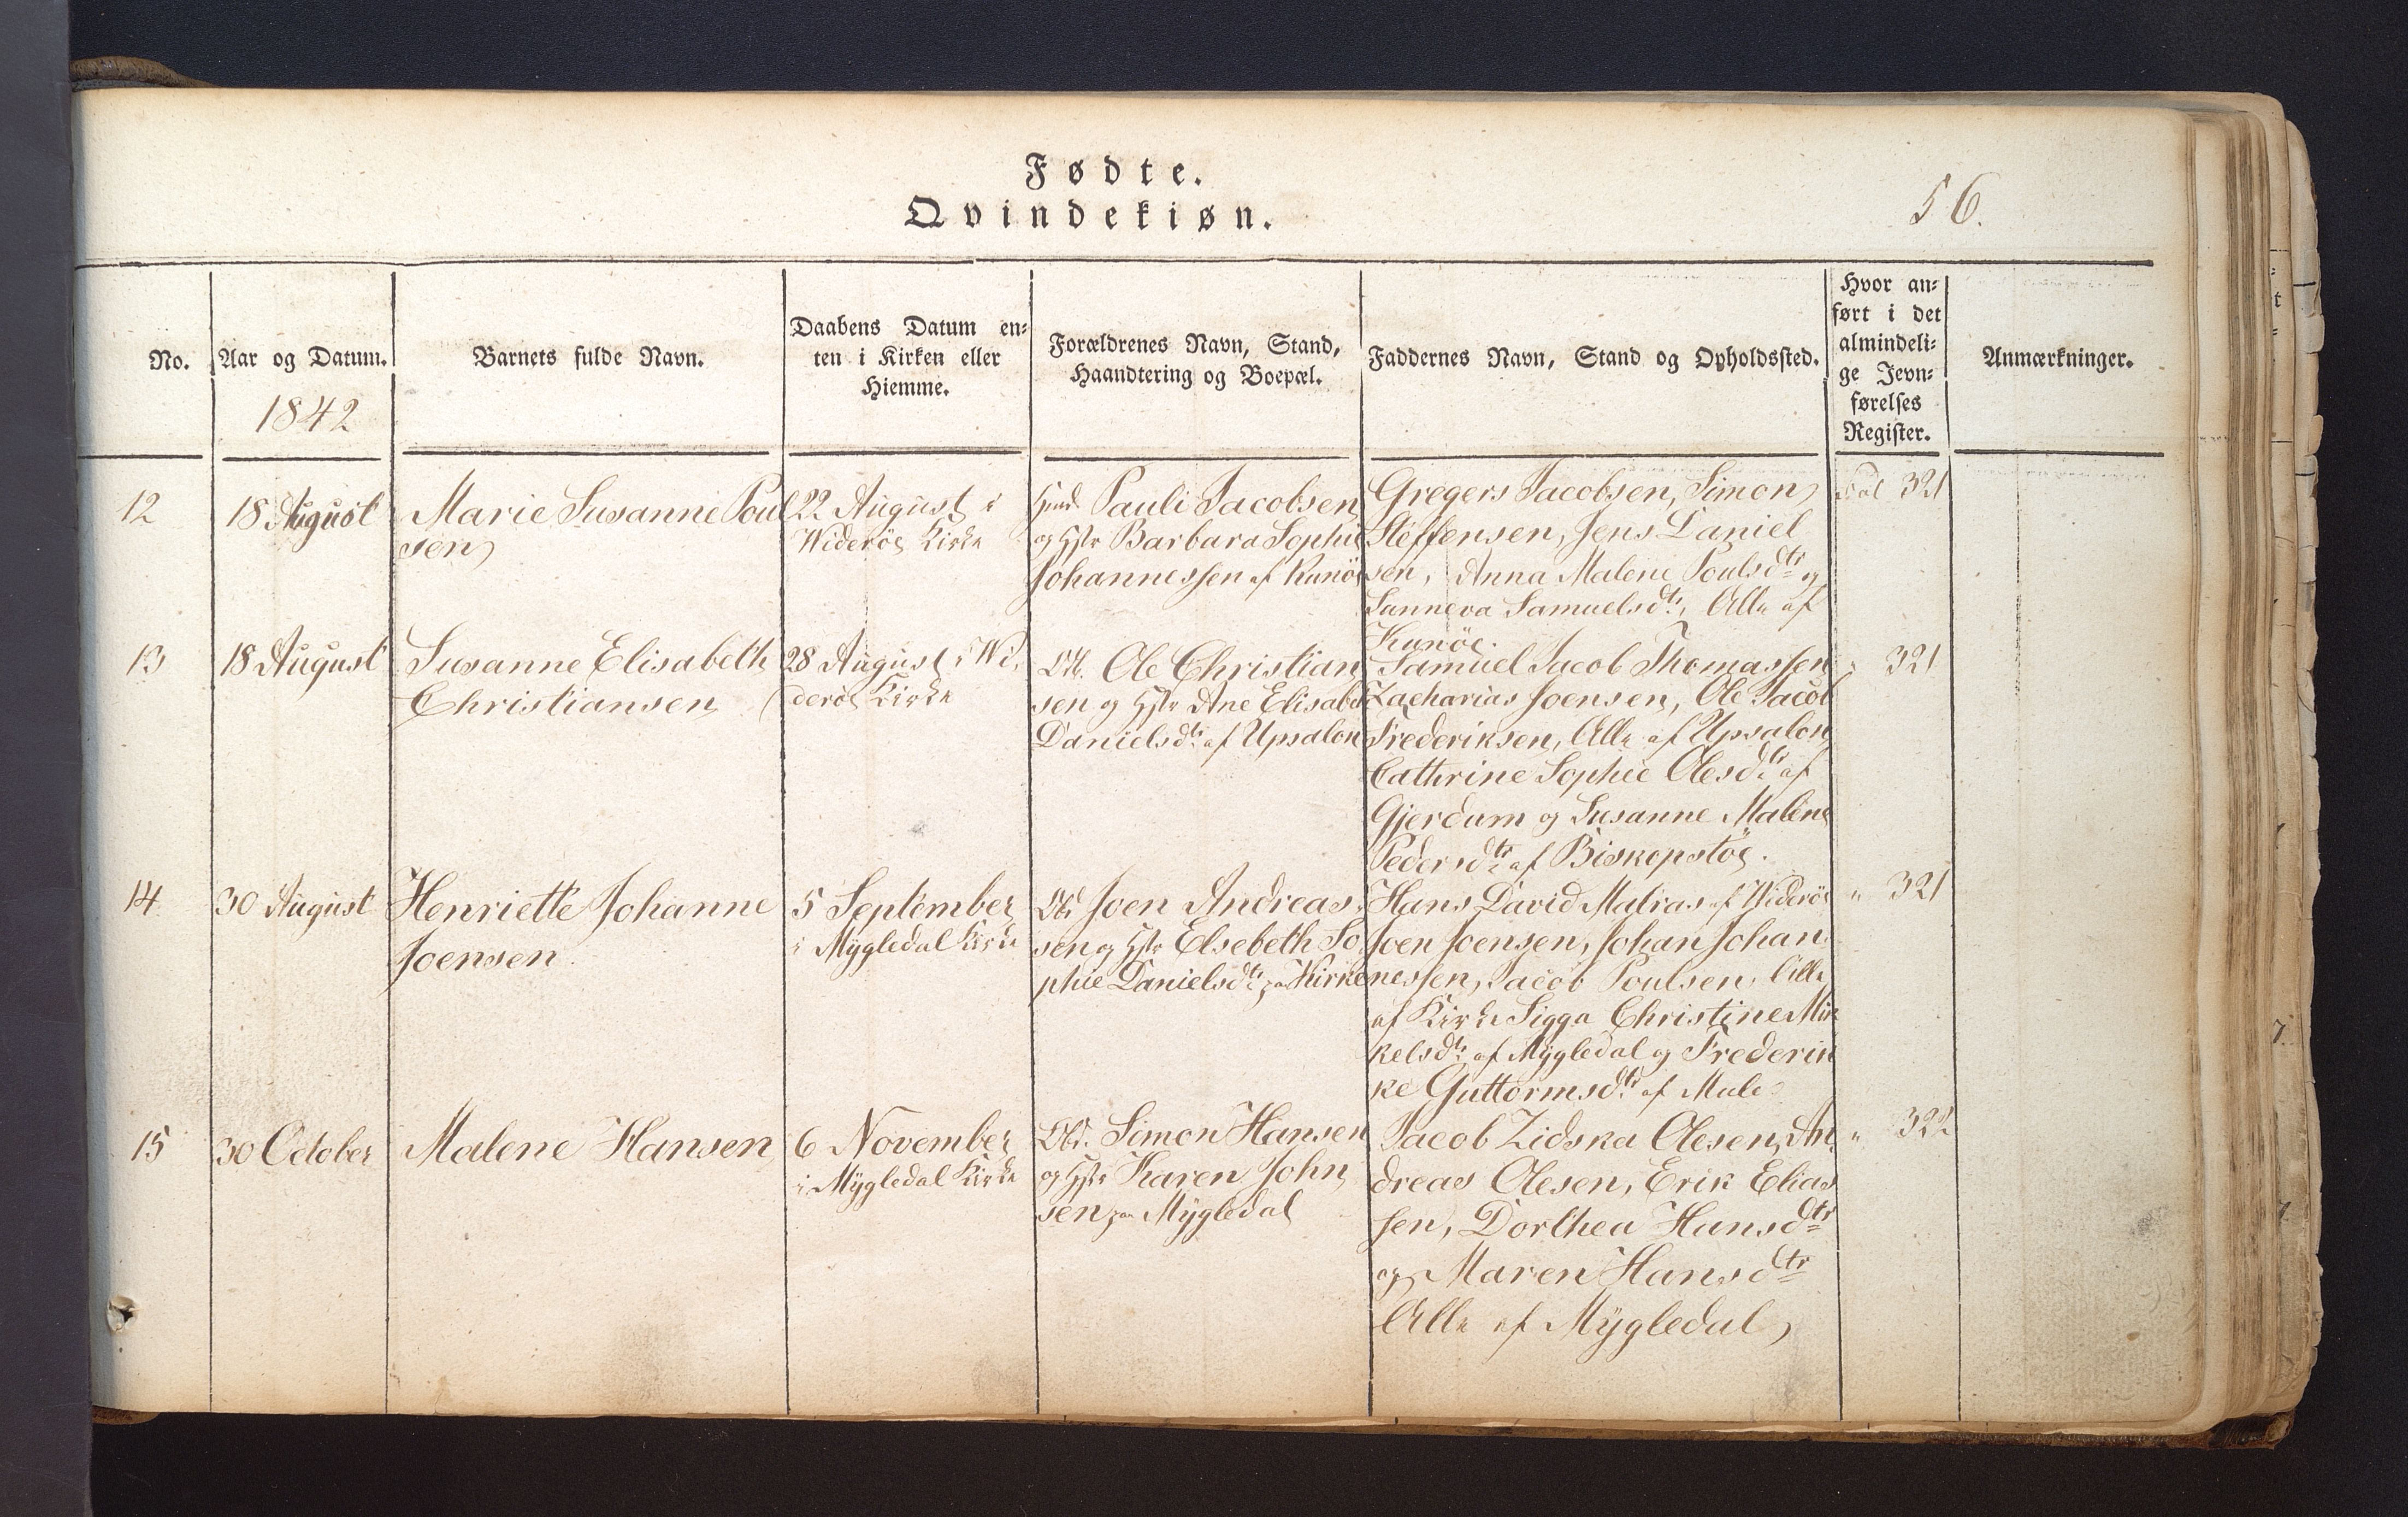 Fødte.
Qvindekiøn.
56.
No.
Aar og Datum.
1842
Barnets fulde Navn.
Daabens Datum en-
ten i Kirken eller
Hiemme.
Forældrenes Navn, Stand,
Haandtering og Boepæl.
Faddernes Navn, Stand og Opholdssted.
Hvor an-
ført i det
almindeli-
ge Jevn-
førelses
Register.
Anmærkninger.
12
18 August
Marie Susanne Poul
sen
22 August i
Wideröe Kirke
Pauli Jacobsen
og Hstr Barbara Sophie
Johannessen af Kunöe
Gregers Jacobsen, Simon
Steffensen, Jens Daniel
sen, Anna Malene Poulsdtr og
Sunneva Samuelsdtr, Alle af
Kunöe.
321
13
18 August
Susanne Elisabeth
Christiansen
28 August i Wi-
deröe Kirke
Obr. Ole Christian
sen og Hstr Ane Elisabet
Danielsdtr af Upsalon
Samuel Jacob Thomassen
Zacharias Joensen, Ole Jacob
Frederiksen, Alle af Upsalon,
Cathrine Sophie Olesdtr af
Gjerdum og Susanne Malene
Pedersdtr af Biskopstöe.
" 321
14
30 August
Henriette Johanne
Joensen
5 September
i Mygledal Kirke
Obr Joen Andreas-
sen og Hstr Elsebeth So
phie Danielsdtr paa Kirke
Hans David Matras af Wideröe
Joen Joensen, Johan Johan
nessen, Jacob Poulsen, Alle
af Kirke Sigga Christine Mik
kelsdtr af Mygledal og Frederik
ke Guttormsdtr af Mule
" 321
15
30 October
Malene Hansen
6 November
i Mygledal Kirke
Obr. Simon Hansen
og Hstr Karen John
sen paa Mygledal
Jacob Zidska Olesen, An
dreas Olesen, Erik Elias
sen, Dorthea Hansdtr
og Maren Hansdtr
Alle af Mygledal
" 322